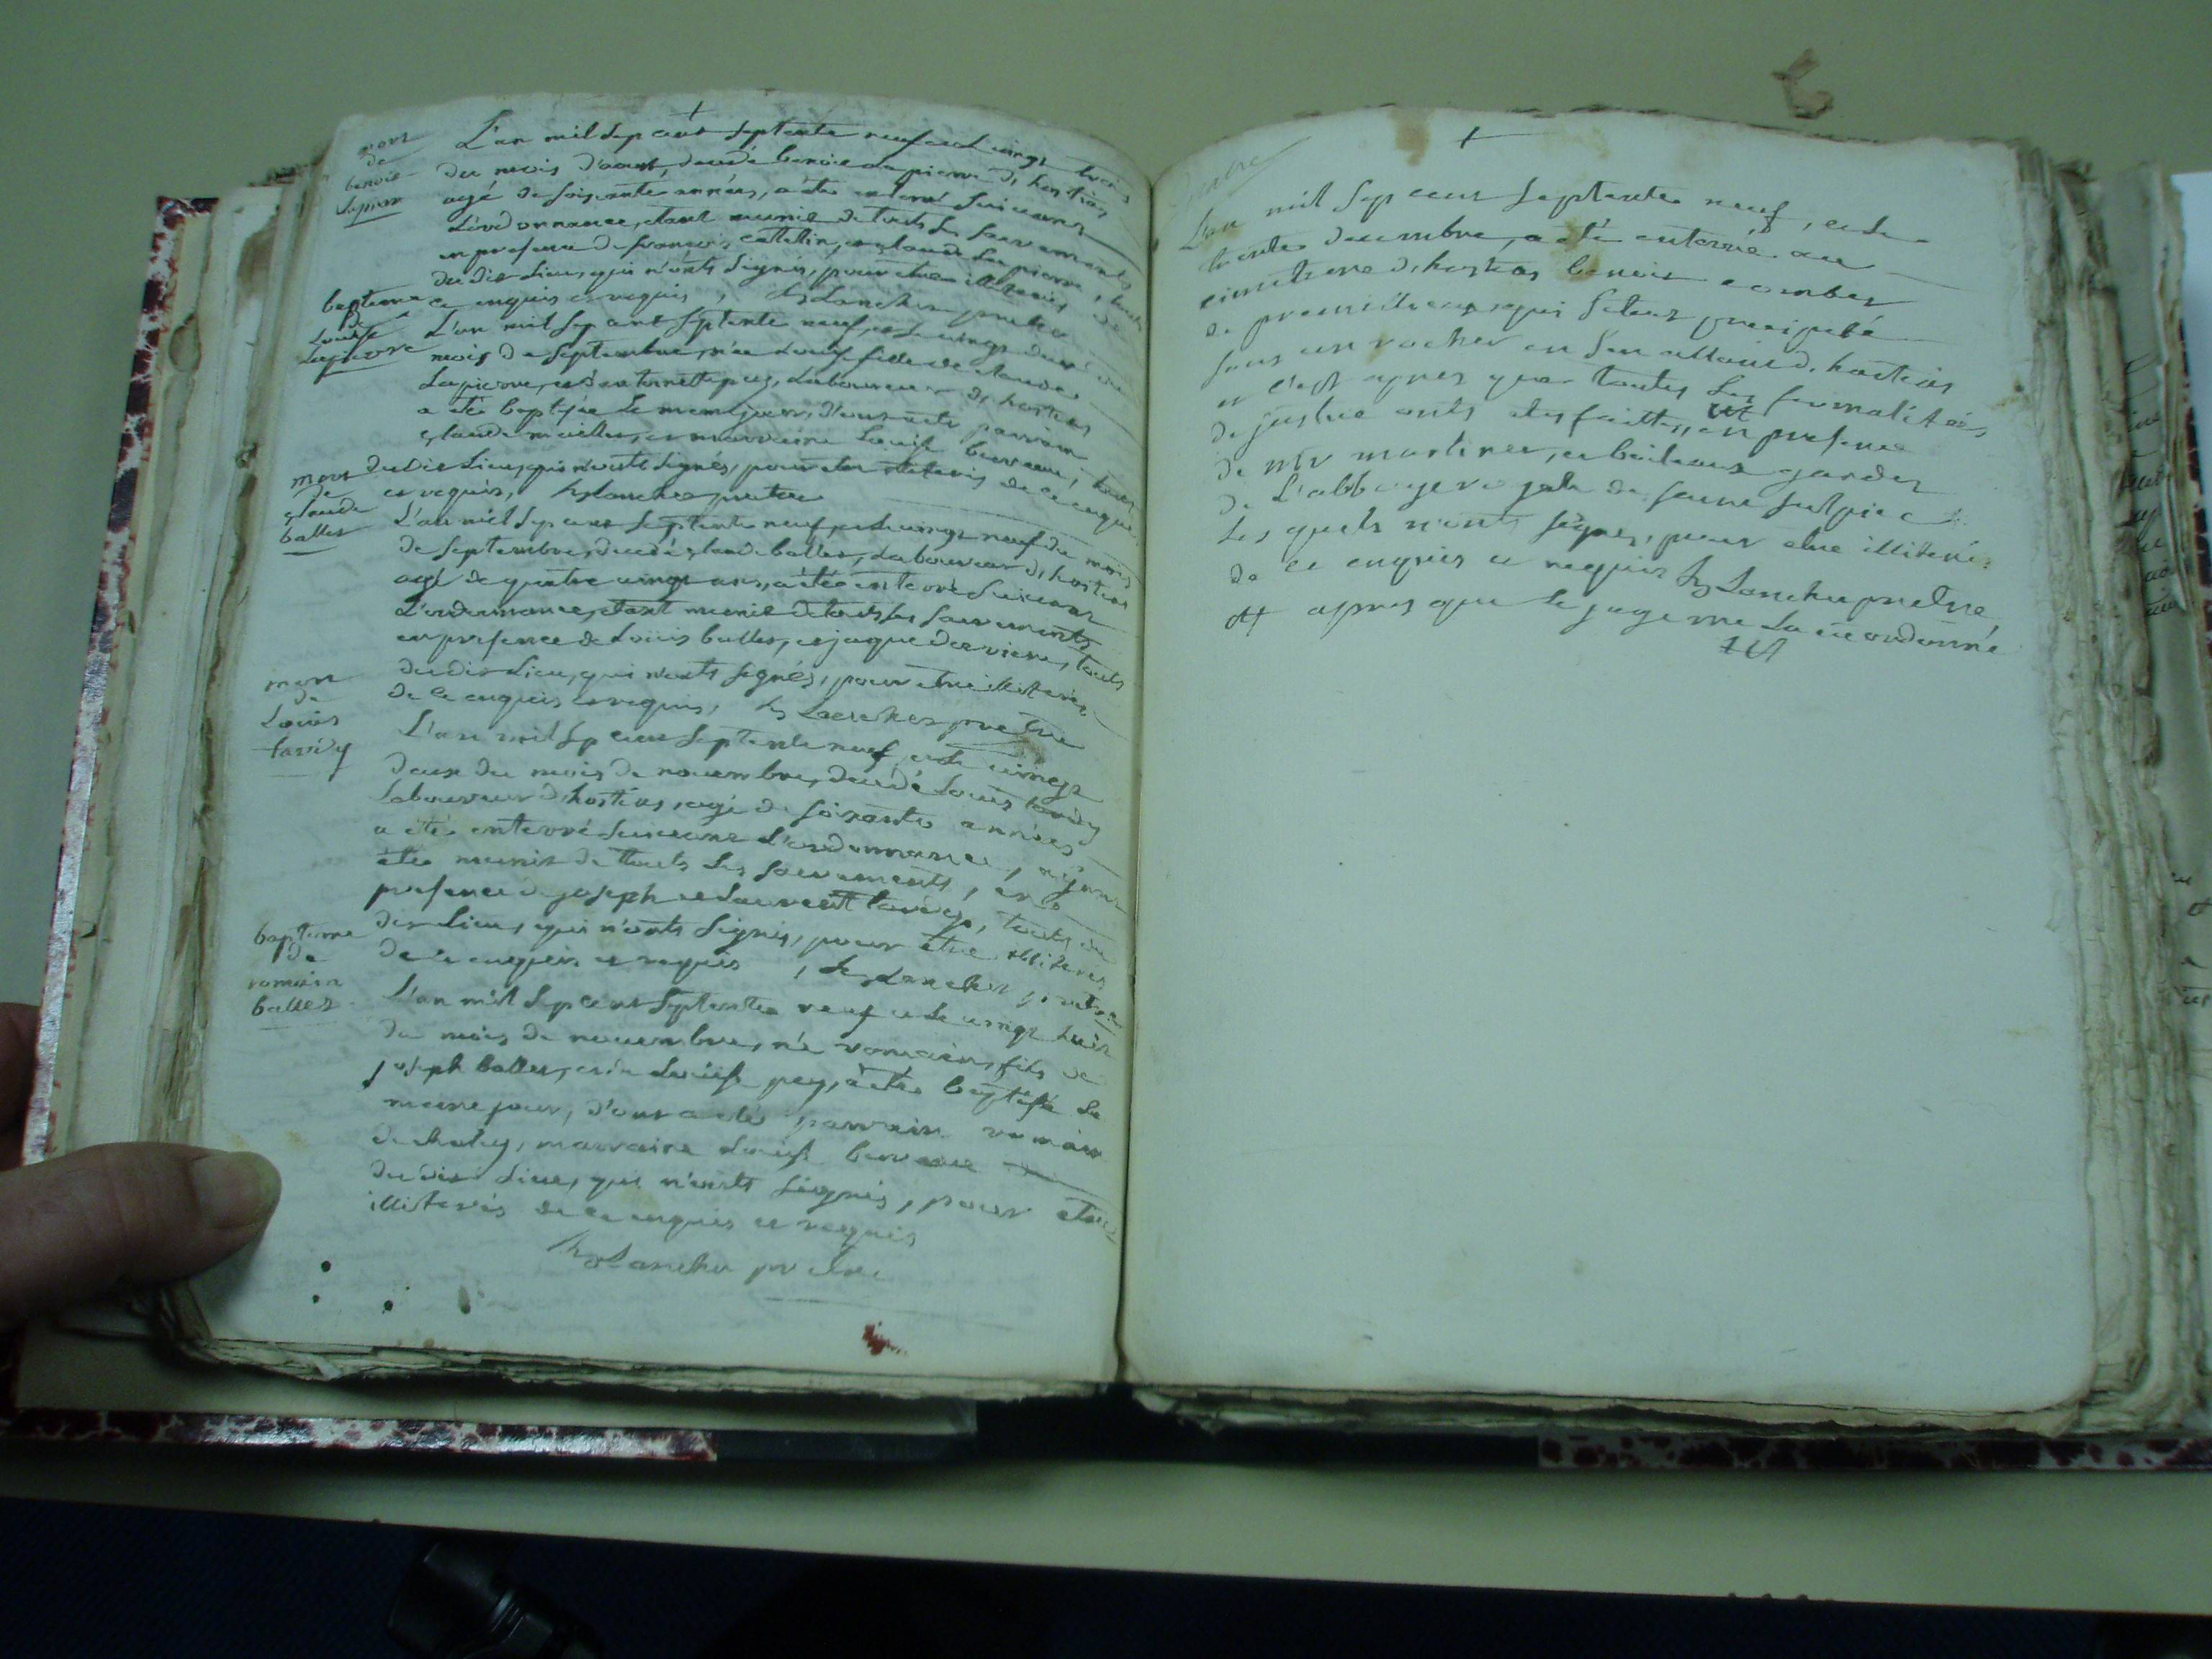 +
mort
de
benoit
lapierre
L'an mil sept cent septente neuf et le vingt trois
du mois d'aoust, decedé benoit lapierre d'hostias
agé de soisente années, a étée enterré suivant
L'ordonnance, etant munie de touts les sacrements
en presence de francois cattelin, et glaude lapierre, touts
du dit lieu, qui n'onts signés, pour etre illiterés de
ce enquis et requis, Blancher pretre
bapteme
de
Louise
Lapierre
L'an mil sept cent septente neuf, et le vingt deux du
mois de septembre, née Louise fille de claude
Lapierre, et d'antoinette pey, laboureur d'hostias
a étée baptisée le meme jour, d'ont a été parrain
glaude millet, et marraine Louise berrene, touts
du dit Lieu, qui n'onts signés, pour etre illiterés de ce enquis
et requis, Blancher pretre
mort
de
glaude
ballet
L'an mil sept cent septente neuf, et le vingt neuf du mois
de septembre, decedé glaude ballet, laboureur d'hostias
agé de quatre vingt ans, a étée enterré suivant
L'ordonnance, etant munie de touts les sacrements
en presence de Loüis ballet, et jaque derviere, touts
du dit Lieu, qui n'onts signés, pour etre illiterés
de ce enquis et requis, Blancher pretre
mort
de
Louis
tardy
L'an mil sept cent septente neuf, et le vingt
deux du mois de novembre, decedé Louis tardy
laboureur d'hostias, agé de soixante années
a étée enterré suivant l'ordonnance, ayant
étée munie de touts les sacrements, en
presence de joseph et laurent tardy, touts du
dit Lieu, qui n'onts signés, pour etre illiterés
de ce enquis et requis, Blancher pretre
bapteme
de
romain
ballet
L'an mil sept cent septente neuf et le vingt huit
du mois de novembre, né romain, fils de
joseph ballet, et de Louise pey, a étée baptisé le
meme jour, d'ont a été parrain romain
marraine Louise berrene
du dit Lieu, qui n'onts signés, pour etre
illiterés de ce enquis et requis
Blancher pretre
+
L'an mil sept cent septente neuf, et le
trente decembre, a étée enterré au
cimetiere d'hostias benoit comber
de premillieu, qui s'etant precipité
sous un rocher
et c'est apres que toutes les formalitées
de justice onts etes faittes, en presence
de martinet, et garder
de L'abbaye royale de saint sulpice
Les quels n'onts signes, pour etre illiterés
de ce enquis et requis Blancher pretre
apres que le juge me la eu ordonné